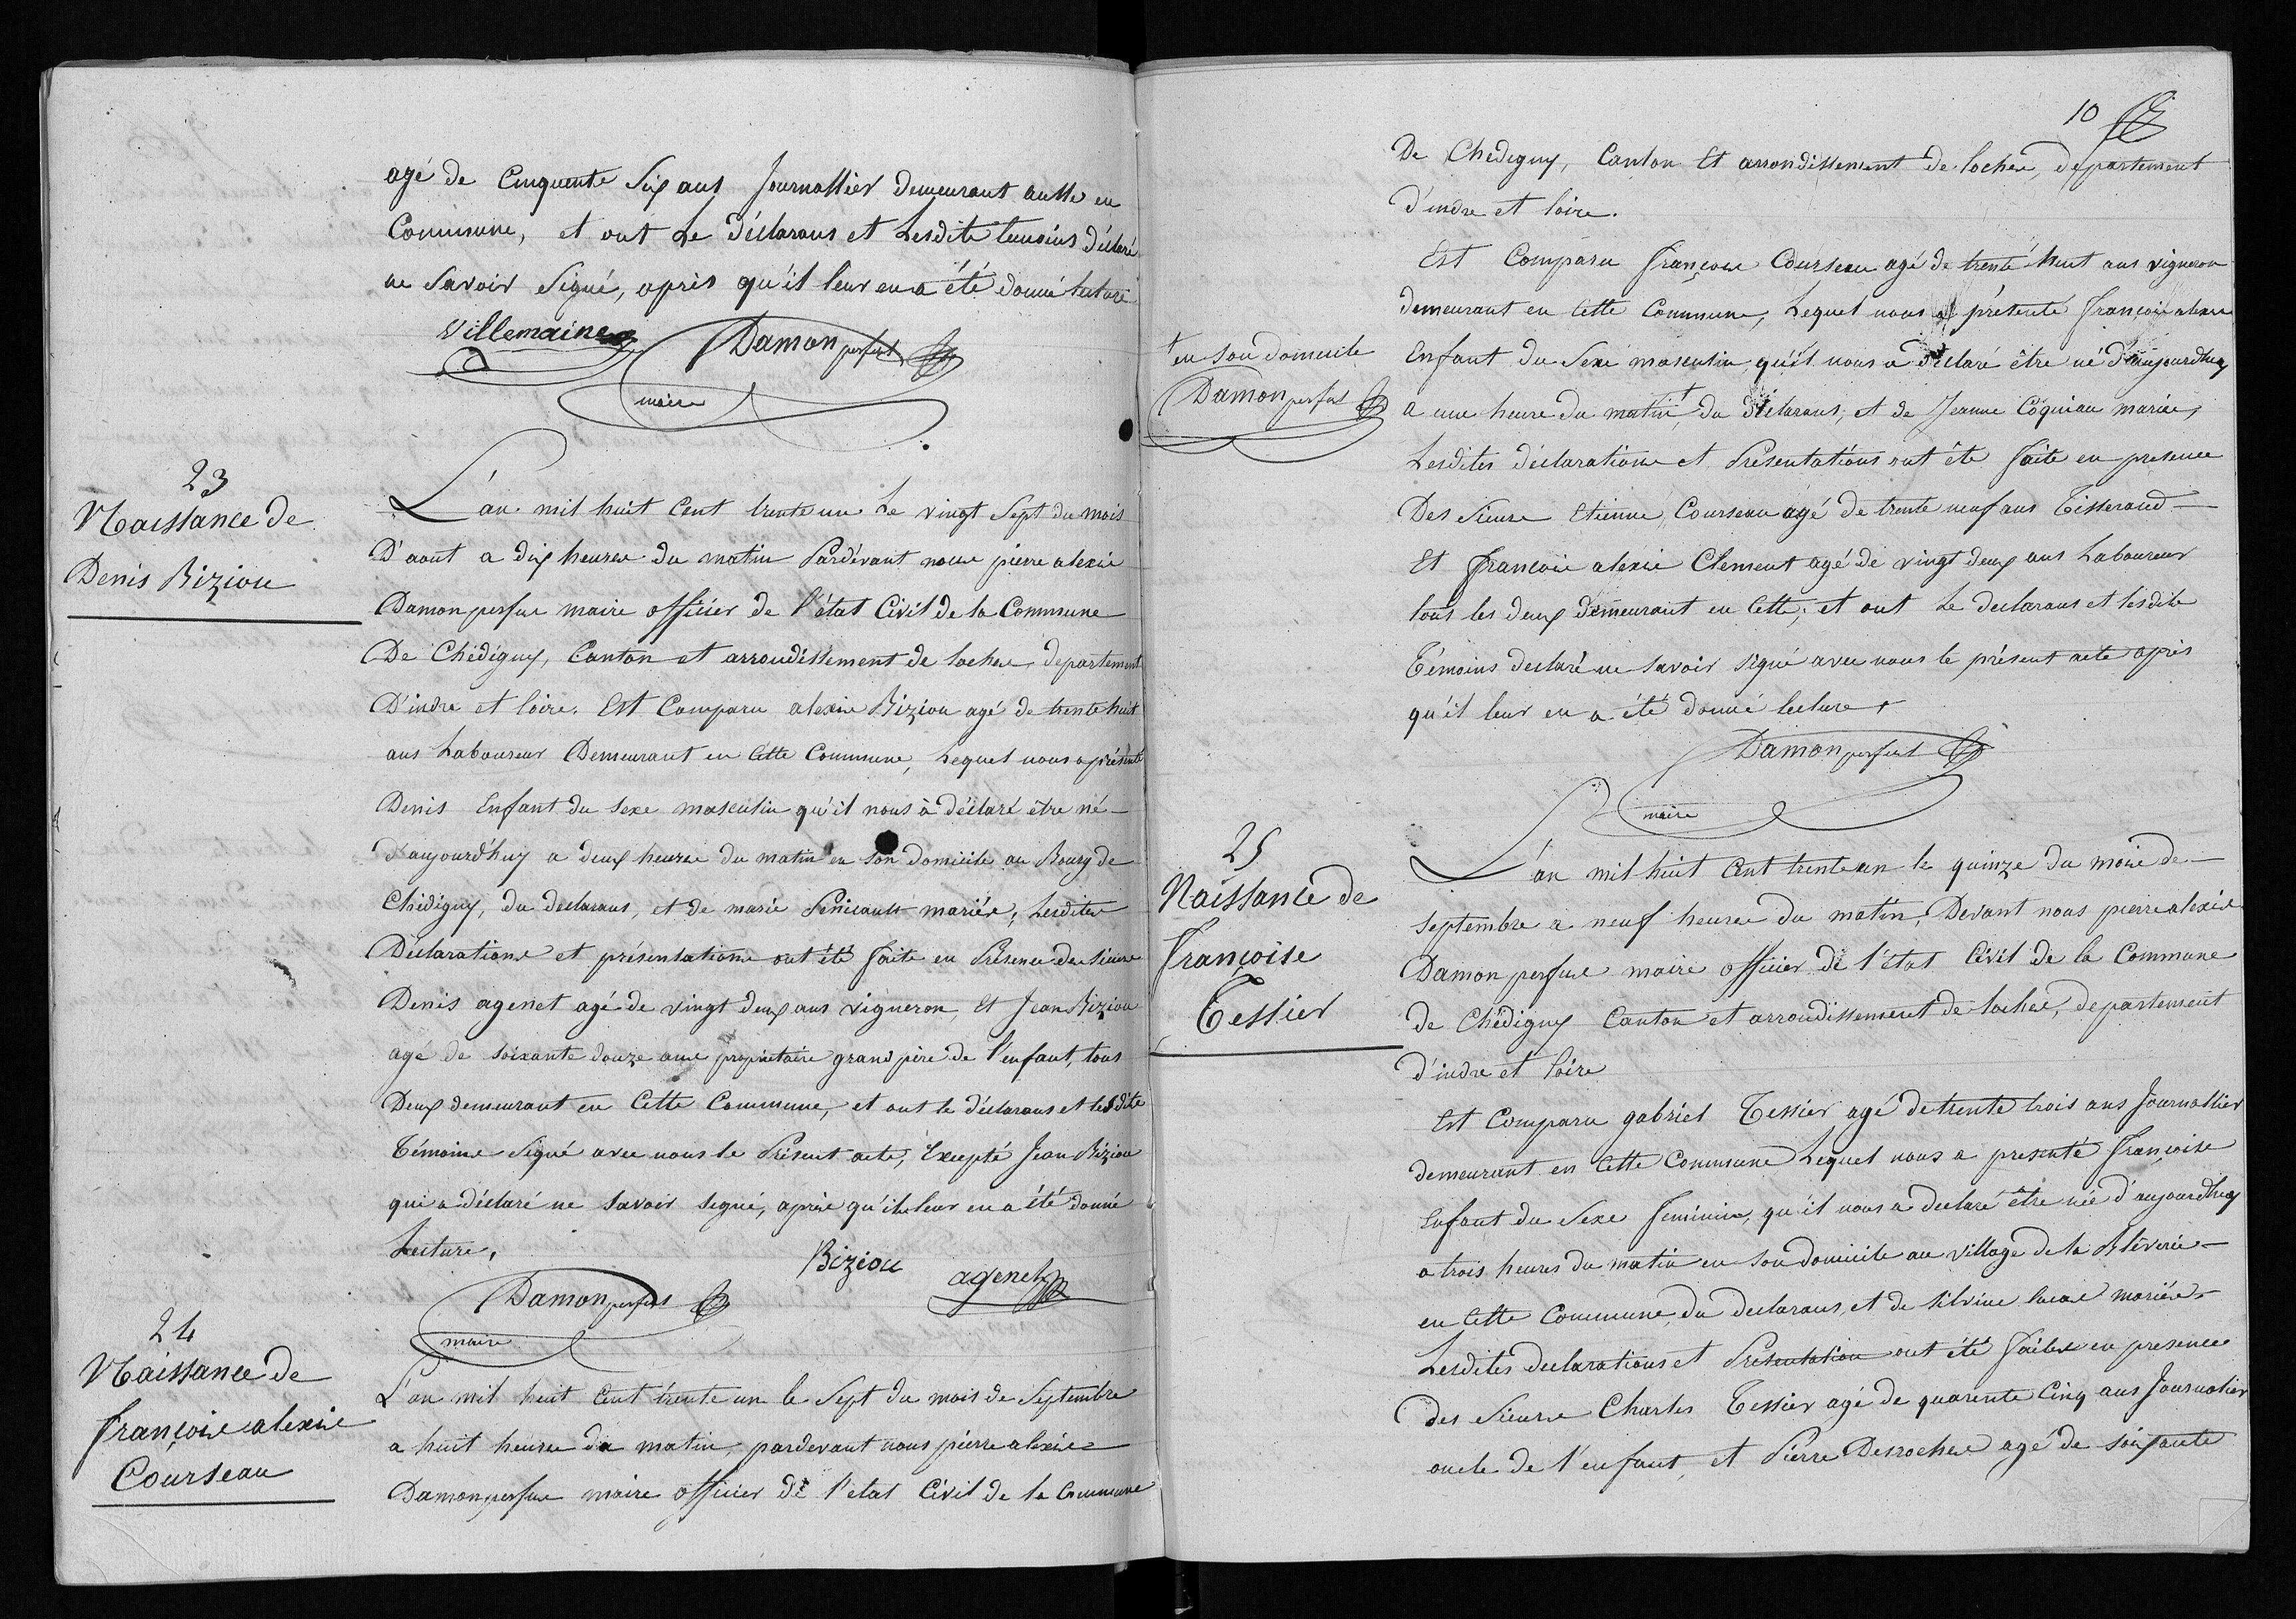 agé de Cinquente Six ans Journallier demeurant
Commune, et ont Le déclarans et Lesdits temoins déclaré
ne Savoir Signé, après qu'il leur en a été donné lecture
Villemaine Damon perfus
maire
23
Naissance de
Denis Biziou
L'an mil huit Cent trente un Le vingt Sept du mois
D'aout a dix heures du matin Pardevant nous pierre alexis
Damon perfus maire officier de l'état Civil de la Commune
De Chédigny, Canton et arrondissement de loches, departement
D'indre et loire. Est Comparu alexis Biziou agé de trente huit
ans Laboureur Demeurant en Cette Commune, Lequel nous a présenté
Denis Enfant du Sexe masculin qu'il nous à déclaré être né
d'aujourd'huy a deux heures du matin en son domicile au Bourg de
Chédigny, du declarans, et de marie Penicault mariés, Lesdites
Déclarations et présentations ont été faite en Présence des sieurs
Denis agenet agé de vingt deux ans vigneron, Et Jean Biziou
agé de soixante douze ans propriétaire grand père de l'enfant, tous
Deux demeurant en Cette Commune, et ont le déclarans et lesdits
Témoins Signé avec nous le Présent acte, Excepté Jean Biziou
qui a déclaré ne savoir signé, après qu'il leur en a été donné
Lecture,
Biziou agenet
Damon perfus
maire
24
Naissance de
françois alexis
Courseau
L'an mil huit Cent trente un le Sept du mois de Septembre
a huit heures du matin, pardevant nous pierre alexis
Damon perfus maire officier de l'etat Civil de la Commune
10
De Chédigny, Canton Et arrondissement de loches, departement
d'indre et loire.
Est Comparu françois Courseau agé de trente huit ans vigneron
demeurant en Cette Commune, Lequel nous a présenté françois alexis
Enfant du Sexe masculin, qu'il nous a déclaré être né d'aujourdhuy
a une heure du matin +, du déclarans, et de Jeanne Coquiau mariés,
+ en son domicile
Damon perfus
Lesdites déclarations et Présentations ont été faite en presence
Des Sieurs Etienne Courseau agé de trente neuf ans Tisserand
Et françois alexis Clement agé de vingt deux ans Laboureur
tous les deux demeurant en Cette, et ont Le declarans et lesdits
Témoins declaré ne savoir signé avec nous le présent acte après
qu'il leur en a été donné lecture,
Damon perfus
maire
25
Naissance de
françoise
Tessier
L'an mil huit Cent trente un le quinze du mois de
septembre a neuf heures du matin, Devant nous pierre alexis
Damon perfus maire officier de l'état Civil de la Commune
de Chédigny Canton et arrondissement de loches, departement
d'indre et loire
Est Comparu gabriel Tessier agé de trente trois ans Journallier
demeurant en Cette Commune Lequel nous a presenté françoise
Enfant du Sexe feminin, qu'il nous a declaré être née d'aujourdhuy
a trois heures du matin en son domicile au village de la
en Cette Commune, du declarans, et de silvine mariés
Lesdites declarations et Présentation ont été faites en presence
des Sieurs Charles Tessier agé de quarente Cinq ans Journalier
oncle de l'enfant, et Pierre Desroches agé de soixante